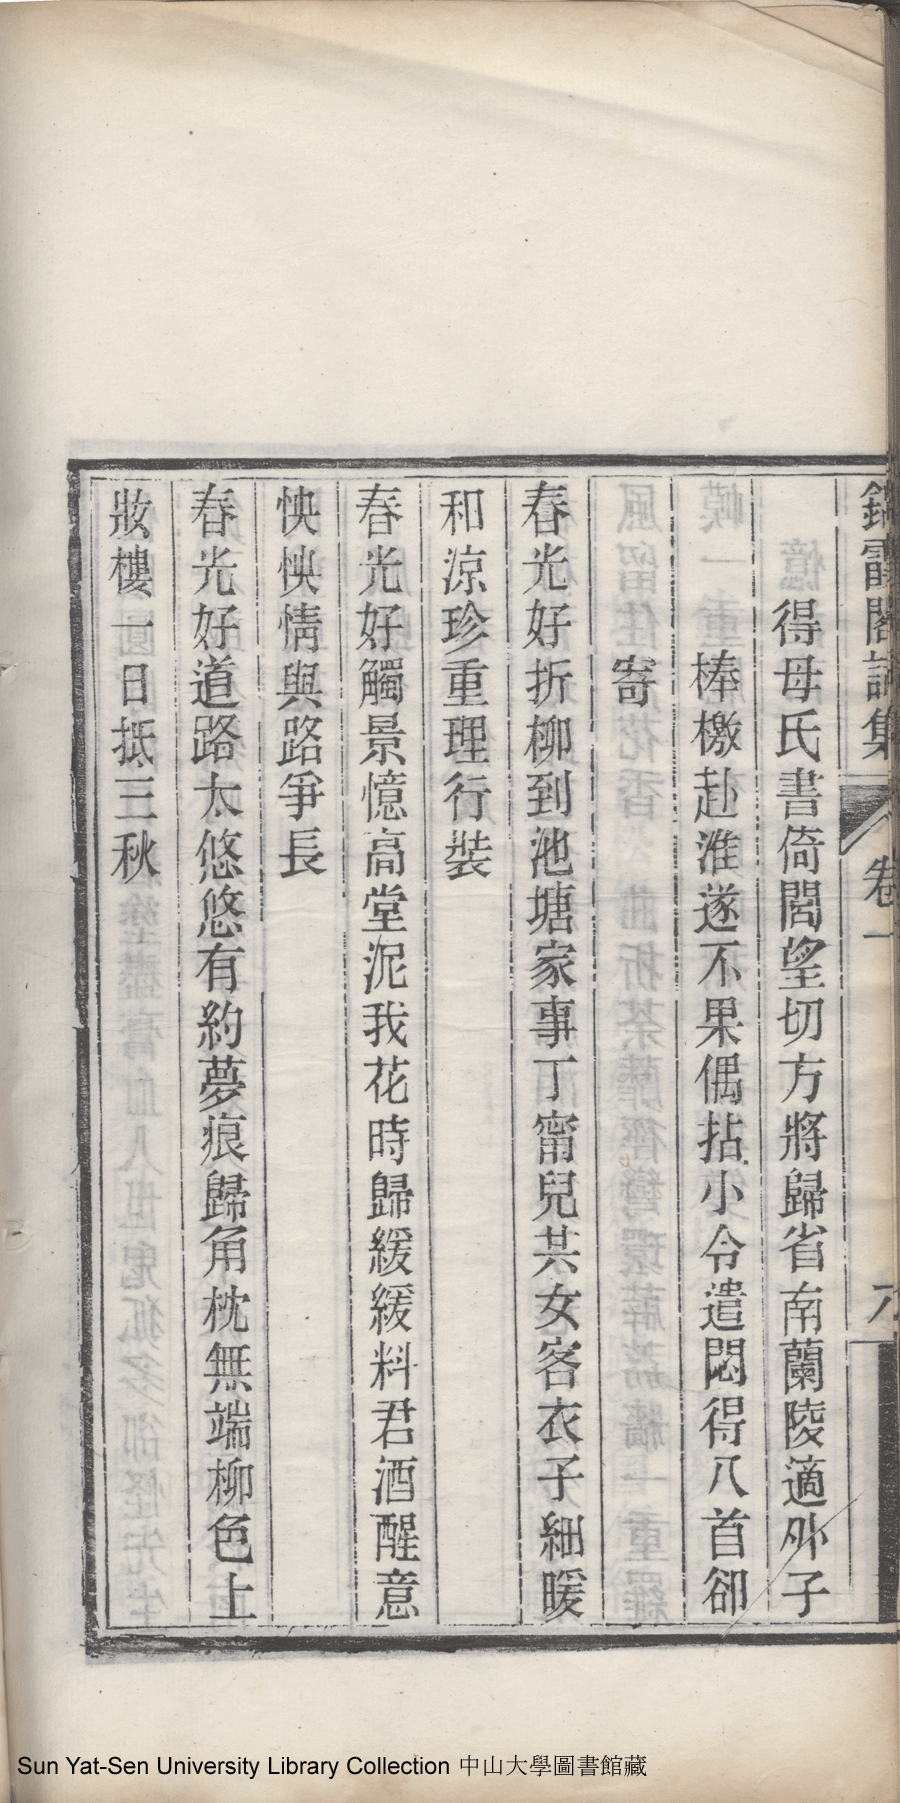 閣詩集 卷一
憶
得母氏書倚閭望切方將歸省南蘭陵適外子
棒檄赴淮遂不果偶拈小令遣悶得八首卻
寄
春光好折柳到池塘家事丁甯兒共女客衣子細暖
和涼珍重理行裝
春光好觸景憶高堂泥我花時歸緩緩料君酒醒意
怏怏情與路爭長
春光好道路太悠悠有約夢痕歸角枕無端柳色上
妝樓一日抵三秋
Sun Yat-Sen University Library Collection 中山大學圖書館藏